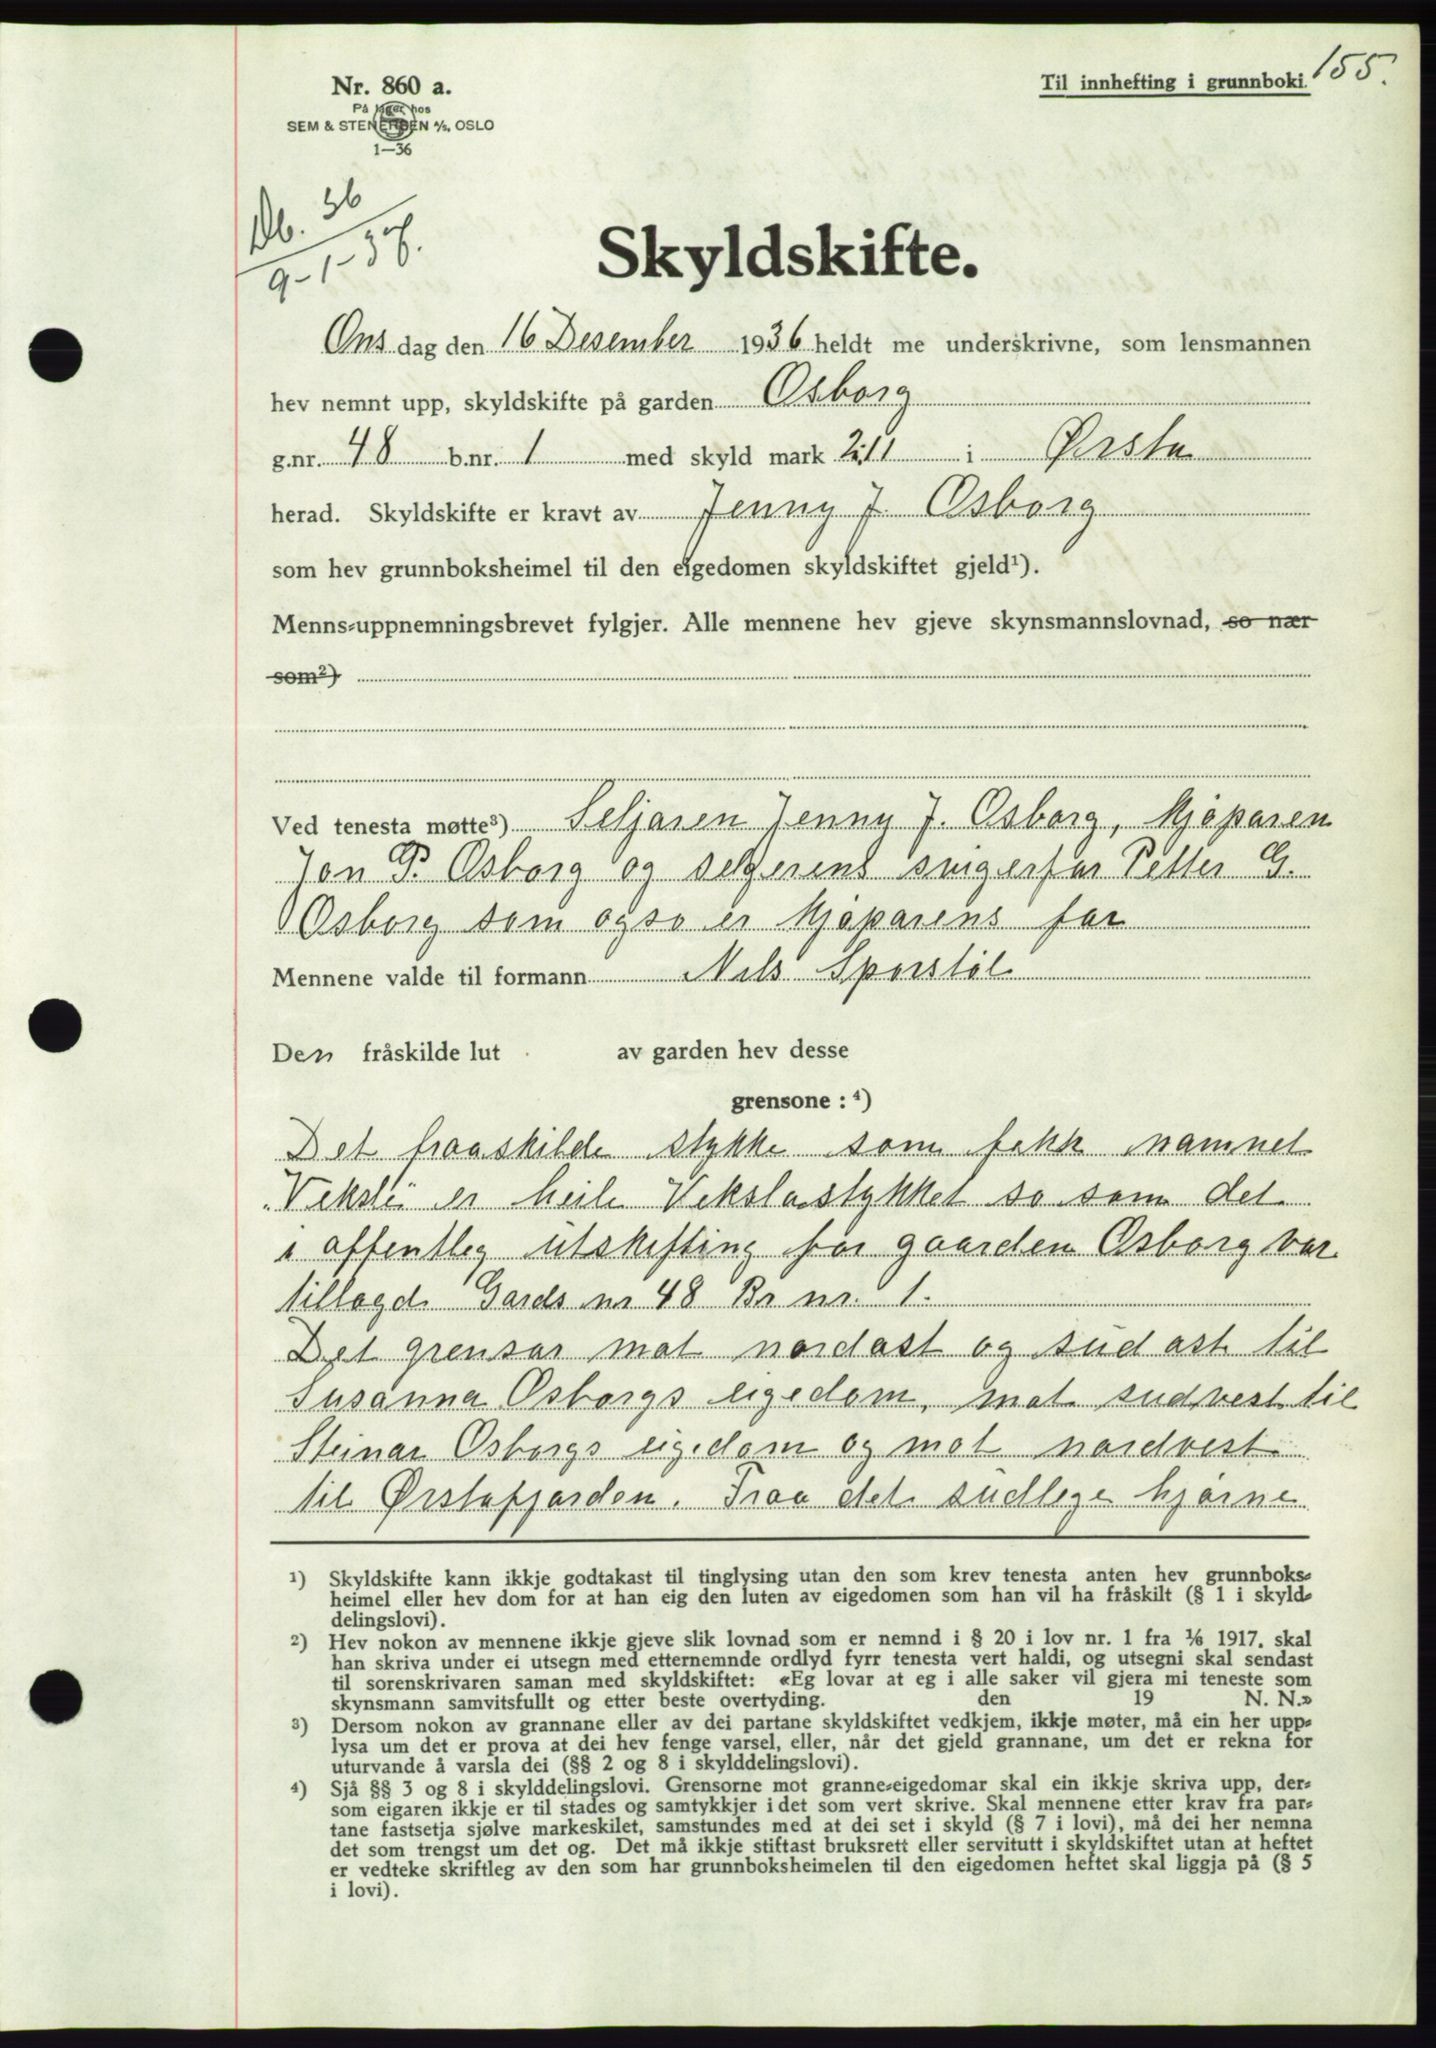 155.
Nr. 860 a.
Til innhefting i grunnboki.
På lager hos
SEM & STENERSEN A/S, OSLO
1—36
Db. 36
9-1-37.
Skyldskifte.
Onsdag den 16 Desember 1936 heldt me underskrivne, som lensmannen
hev nemnt upp, skyldskifte på garden Osborg
g.nr. 48 b.nr. 1 med skyld mark 2.11 i Ørsta
herad. Skyldskifte er kravt av Jenny J. Osborg
som hev grunnboksheimel til den eigedomen skyldskiftet gjeld¹).
Menns-uppnemningsbrevet fylgjer. Alle mennene hev gjeve skynsmannslovnad, so nær
som²)
Ved tenesta møtte³) Seljaren Jenny J. Osborg, Kjøparen
Jon P. Osborg og selgerens svigerfar Petter G.
Osborg som ogso er kjøparens far
Mennene valde til formann Nils Sporstøl
Den fråskilde lut av garden hev desse
grensone : ⁴)
Det fraaskilde stykke som fekk namnet
"Vekslå" er heile Vekslastykket so som det
i offentleg utskifting for gaarden Osborg var
tillagd Gards nr 48 Br nr. 1.
Det grensar mot nordast og sudast til
Susanna Osborgs eigedom, mot sudvest til
Steinar Osborgs eigedom og mot nordvest
til Ørstafjorden. Fraa det sudlege hjørne
¹) Skyldskifte kann ikkje godtakast til tinglysing utan den som krev tenesta anten hev grunnboks-
heimel eller hev dom for at han eig den luten av eigedomen som han vil ha fråskilt (§ 1 i skyld-
delingslovi).
²) Hev nokon av mennene ikkje gjeve slik lovnad som er nemnd i § 20 i lov nr. 1 fra 1/6 1917, skal
han skriva under ei utsegn med etternemnde ordlyd fyrr tenesta vert haldi, og utsegni skal sendast
til sorenskrivaren saman med skyldskiftet: «Eg lovar at eg i alle saker vil gjera mi teneste som
skynsmann samvitsfullt og etter beste overtyding. den 19 N. N.»
³) Dersom nokon av grannane eller av dei partane skyldskiftet vedkjem, ikkje møter, må ein her upp-
lysa um det er prova at dei hev fenge varsel, eller, når det gjeld grannane, um det er rekna for
uturvande å varsla dei (§§ 2 og 8 i skylddelingslovi).
⁴) Sjå §§ 3 og 8 i skylddelingslovi. Grensorne mot granne-eigedomar skal ein ikkje skriva upp, der-
som eigaren ikkje er til stades og samtykkjer i det som vert skrive. Skal mennene etter krav fra par-
tane fastsetja sjølve markeskilet, samstundes med at dei set i skyld (§ 7 i lovi), må dei her nemna
det som trengst um det og. Det må ikkje stiftast bruksrett eller servitutt i skyldskiftet utan at heftet
er vedteke skriftleg av den som har grunnboksheimelen til den eigedomen heftet skal liggja på (§ 5
i lovi).